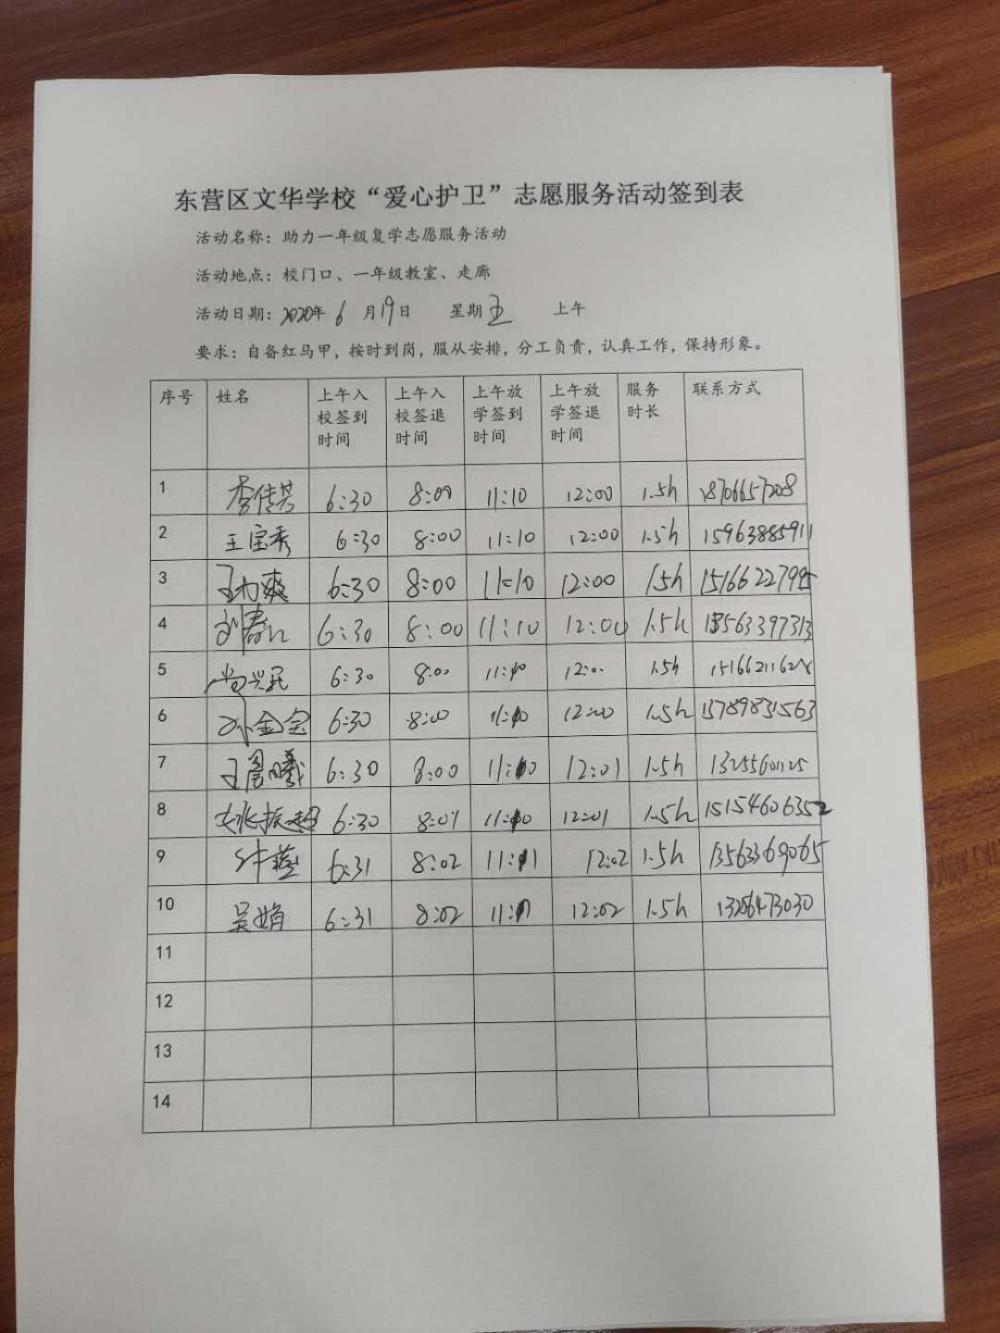 东营区文华学校“爱心护卫”志愿服务活动签到表
活动名称：助力一年级复学志愿服务活动
活动地点：校门口、一年级教室、走廊
活动日期：2020年 6 月19日 星期五 上午
要求：自备红马甲，按时到岗，服从安排，分工负责，认真工作，保持形象。
序号 姓名 上午入校签到时间 上午入校签退时间 上午放学签到时间 上午放学签退时间 服务时长 联系方式
1 李传芳 6:30 8:00 11:10 12:00 1.5h 18706657208
2 王宝秀 6:30 8:00 11:10 12:00 1.5h 15963885911
3 6:30 8:00 11:10 12:00 1.5h
4 6:30 8:00 11:10 12:00 1.5h
5 尚兴民 6:30 8:00 11:10 12:00 1.5h
6 孙金宝 6:30 8:00 11:10 12:00 1.5h 13789831563
7 6:30 8:00 11:10 12:01 1.5h 13255601125
8 姚振超 6:30 8:01 11:10 12:01 1.5h 15154606352
9 6:31 8:02 11:11 12:02 1.5h 13563369065
10 吴娟 6:31 8:02 11:11 12:02 1.5h
11
12
13
14